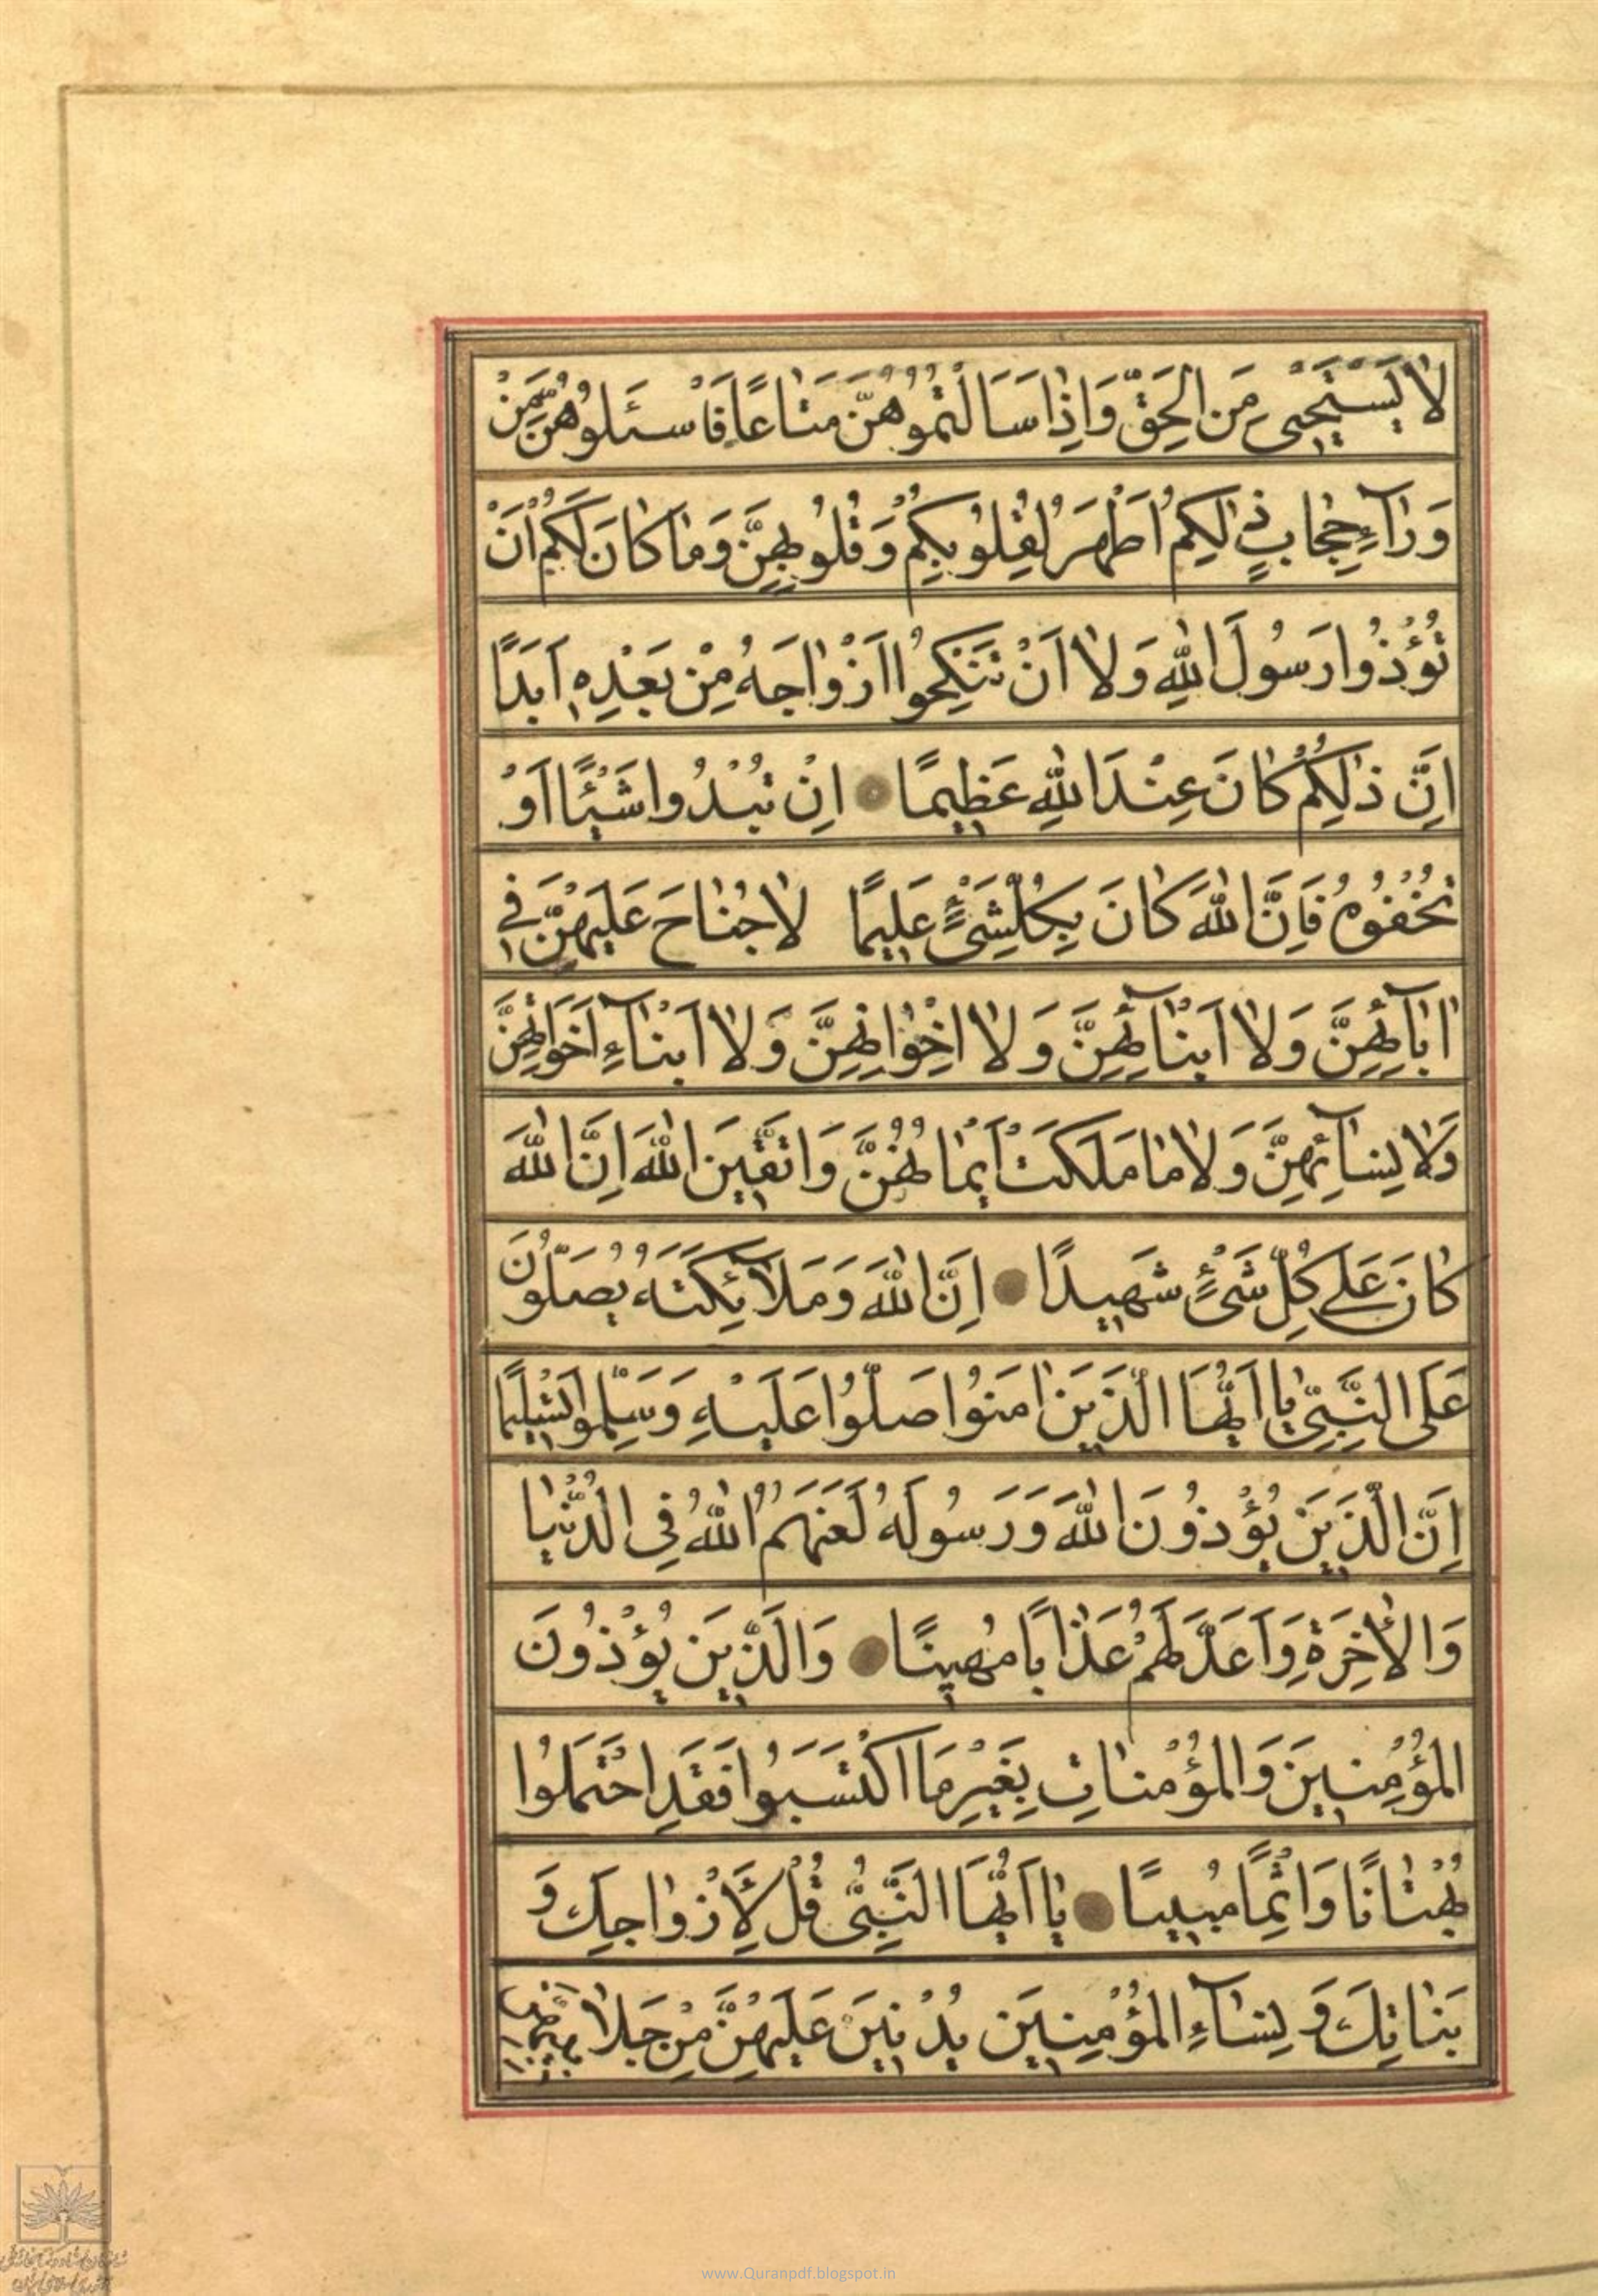 لَا يَسْتَحْيِي مِنَ الْحَقِّ وَاِذَا سَاَلْتُمُوهُنَّ مَتَاعًا فَاسْئَلُوهُنَّ مِنْ
وَرَآءِ حِجَابٍ ذٰلِكُمْ اَطْهَرُ لِقُلُوبِكُمْ وَقُلُوبِهِنَّ وَمَا كَانَ لَكُمْ اَنْ
تُؤْذُوا رَسُولَ اللهِ وَلَا اَنْ تَنْكِحُوا اَزْوَاجَهُ مِنْ بَعْدِهِ اَبَدًا
اِنَّ ذٰلِكُمْ كَانَ عِنْدَ اللهِ عَظِيمًا اِنْ تُبْدُوا شَيْئًا اَوْ
تُخْفُوهُ فَاِنَّ اللهَ كَانَ بِكُلِّ شَيْءٍ عَلِيمًا لَا جُنَاحَ عَلَيْهِنَّ فِي
اٰبَآئِهِنَّ وَلَا اَبْنَآئِهِنَّ وَلَا اِخْوَانِهِنَّ وَلَا اَبْنَآءِ اَخَوَاتِهِنَّ
وَلَا نِسَآئِهِنَّ وَلَا مَا مَلَكَتْ اَيْمَانُهُنَّ وَاتَّقِينَ اللهَ اِنَّ اللهَ
كَانَ عَلٰى كُلِّ شَيْءٍ شَهِيدًا اِنَّ اللهَ وَمَلَآئِكَتَهُ يُصَلُّونَ
عَلَى النَّبِيِّ يَا اَيُّهَا الَّذِينَ اٰمَنُوا صَلُّوا عَلَيْهِ وَسَلِّمُوا تَسْلِيمًا
اِنَّ الَّذِينَ يُؤْذُونَ اللهَ وَرَسُولَهُ لَعَنَهُمُ اللهُ فِي الدُّنْيَا
وَالْاٰخِرَةِ وَاَعَدَّ لَهُمْ عَذَابًا مُهِينًا وَالَّذِينَ يُؤْذُونَ
الْمُؤْمِنِينَ وَالْمُؤْمِنَاتِ بِغَيْرِ مَا اكْتَسَبُوا فَقَدِ احْتَمَلُوا
بُهْتَانًا وَاِثْمًا مُبِينًا يَا اَيُّهَا النَّبِيُّ قُلْ لِاَزْوَاجِكَ وَ
بَنَاتِكَ وَ نِسَآءِ الْمُؤْمِنِينَ يُدْنِينَ عَلَيْهِنَّ مِنْ جَلَابِيبِهِنَّ
www.Quranpdf.blogspot.in